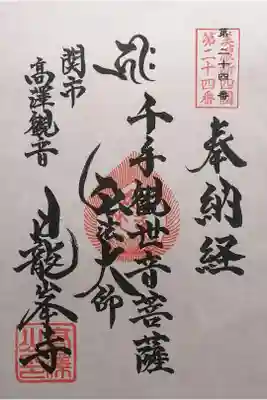 第二十四番
奉納経
千手観世音菩薩
弘法大師
関市
高澤観音
日龍峯寺